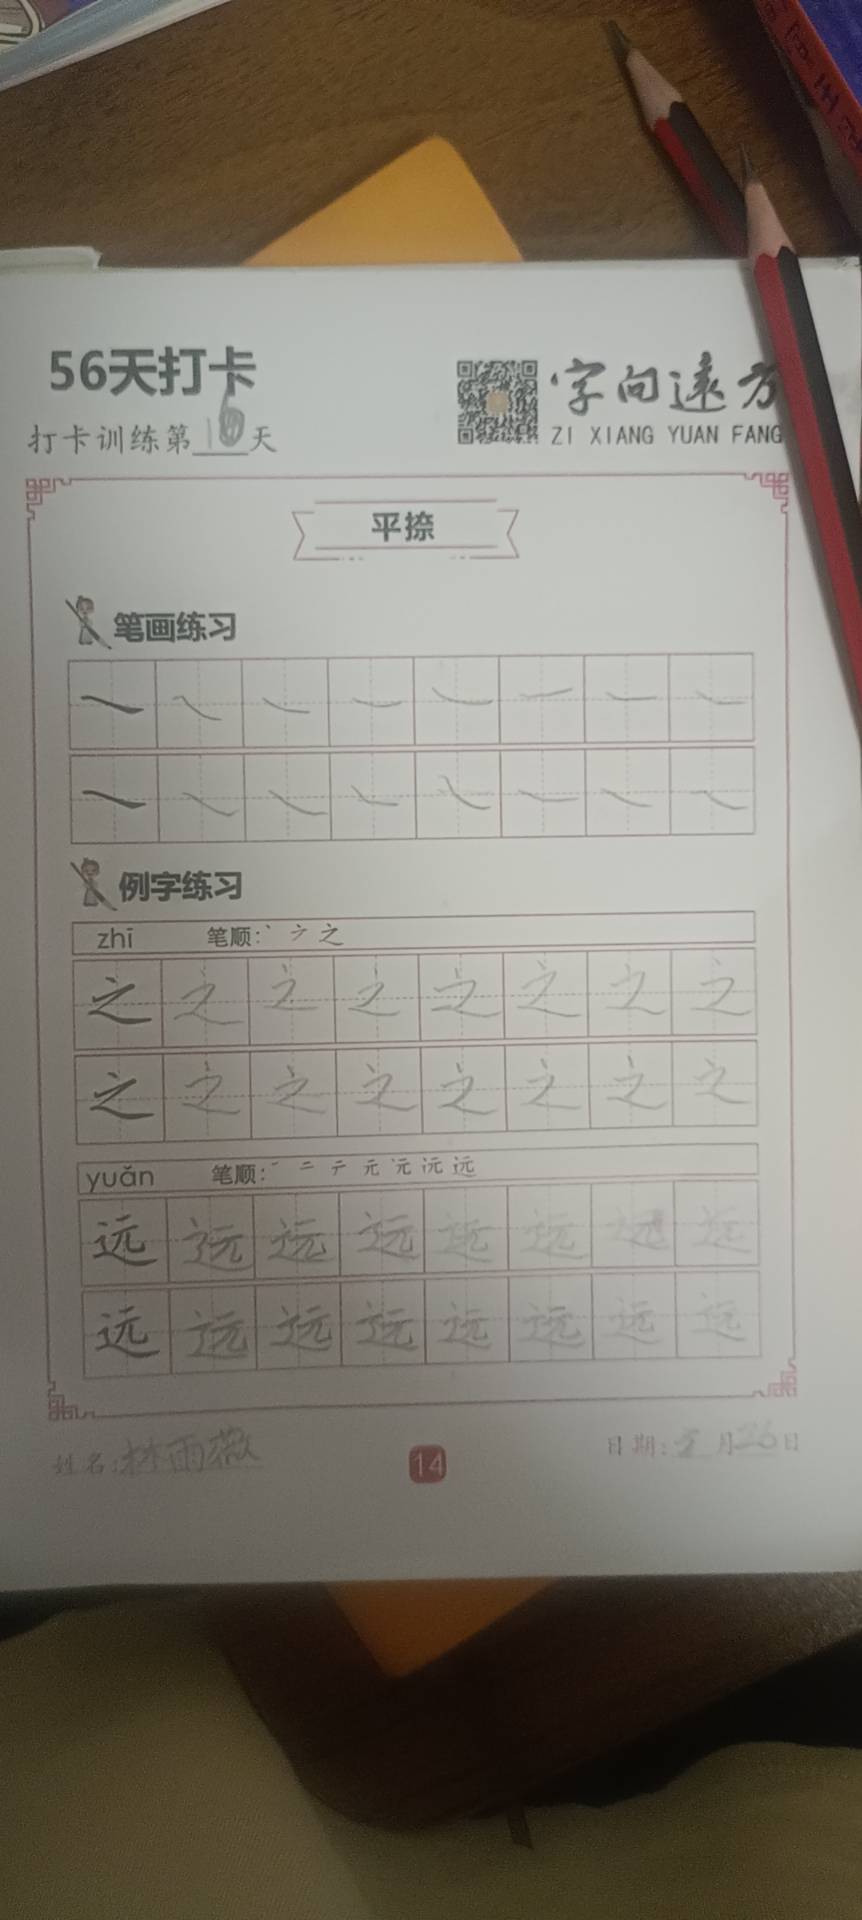 56天打卡
字向远方
打卡训练第16天
ZI XIANG YUAN FANG
平捺
笔画练习
例字练习
zhī 笔顺: 丶 之
之 之 之 之 之 之 之 之
之 之 之 之 之 之 之 之
yuǎn 笔顺: 一 二 テ 元 元 沅 远
远 远 远 远 远 远 远 远
远 远 远 远 远 远 远 远
姓名:林雨薇
14
日期: 月26日